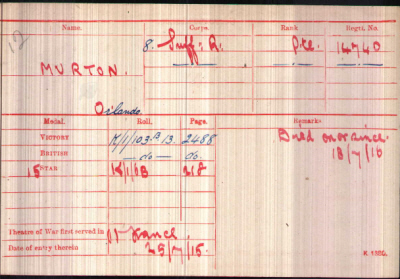 12
Name. Corps. Rank Regtl. No.
8. Suff: R. Pte. 14740
MURTON.
Orlando.
Medal. Roll. Page. Remarks
VICTORY K/1/103.B.13. 2488
BRITISH — do — do.
15 STAR K/1/6B 218
18/7/16
Theatre of War first served in France.
Date of entry therein 25/7/15.
K 1380.